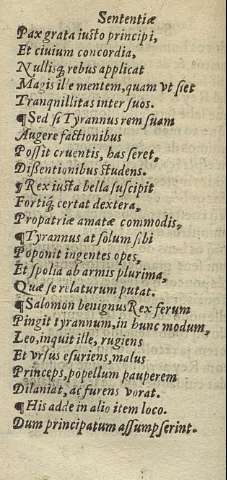 Sententiæ
Pax grata iusto principi,
Et ciuium concordia,
Nullisq; rebus applicat
Magis ille mentem, quam vt siet
Tranquillitas inter suos.
¶ Sed si Tyrannus rem suam
Augere factionibus
Possit cruentis, has seret,
Dißentionibus studens.
¶ Rex iusta bella suscipit
Fortiq; certat dextera,
Propatriæ amatæ commodis,
¶ Tyrannus at solum sibi
Poponit ingentes opes,
Et spolia ab armis plurima,
Quæ se relaturum putat.
¶ Salomon benignus Rex ferum
Pingit tyrannum, in hunc modum,
Leo, inquit ille, rugiens
Et vrsus esuriens, malus
Princeps, popellum pauperem
Dilaniat, ac furens vorat.
¶ His adde in alio item loco.
Dum principatum assumpserint.